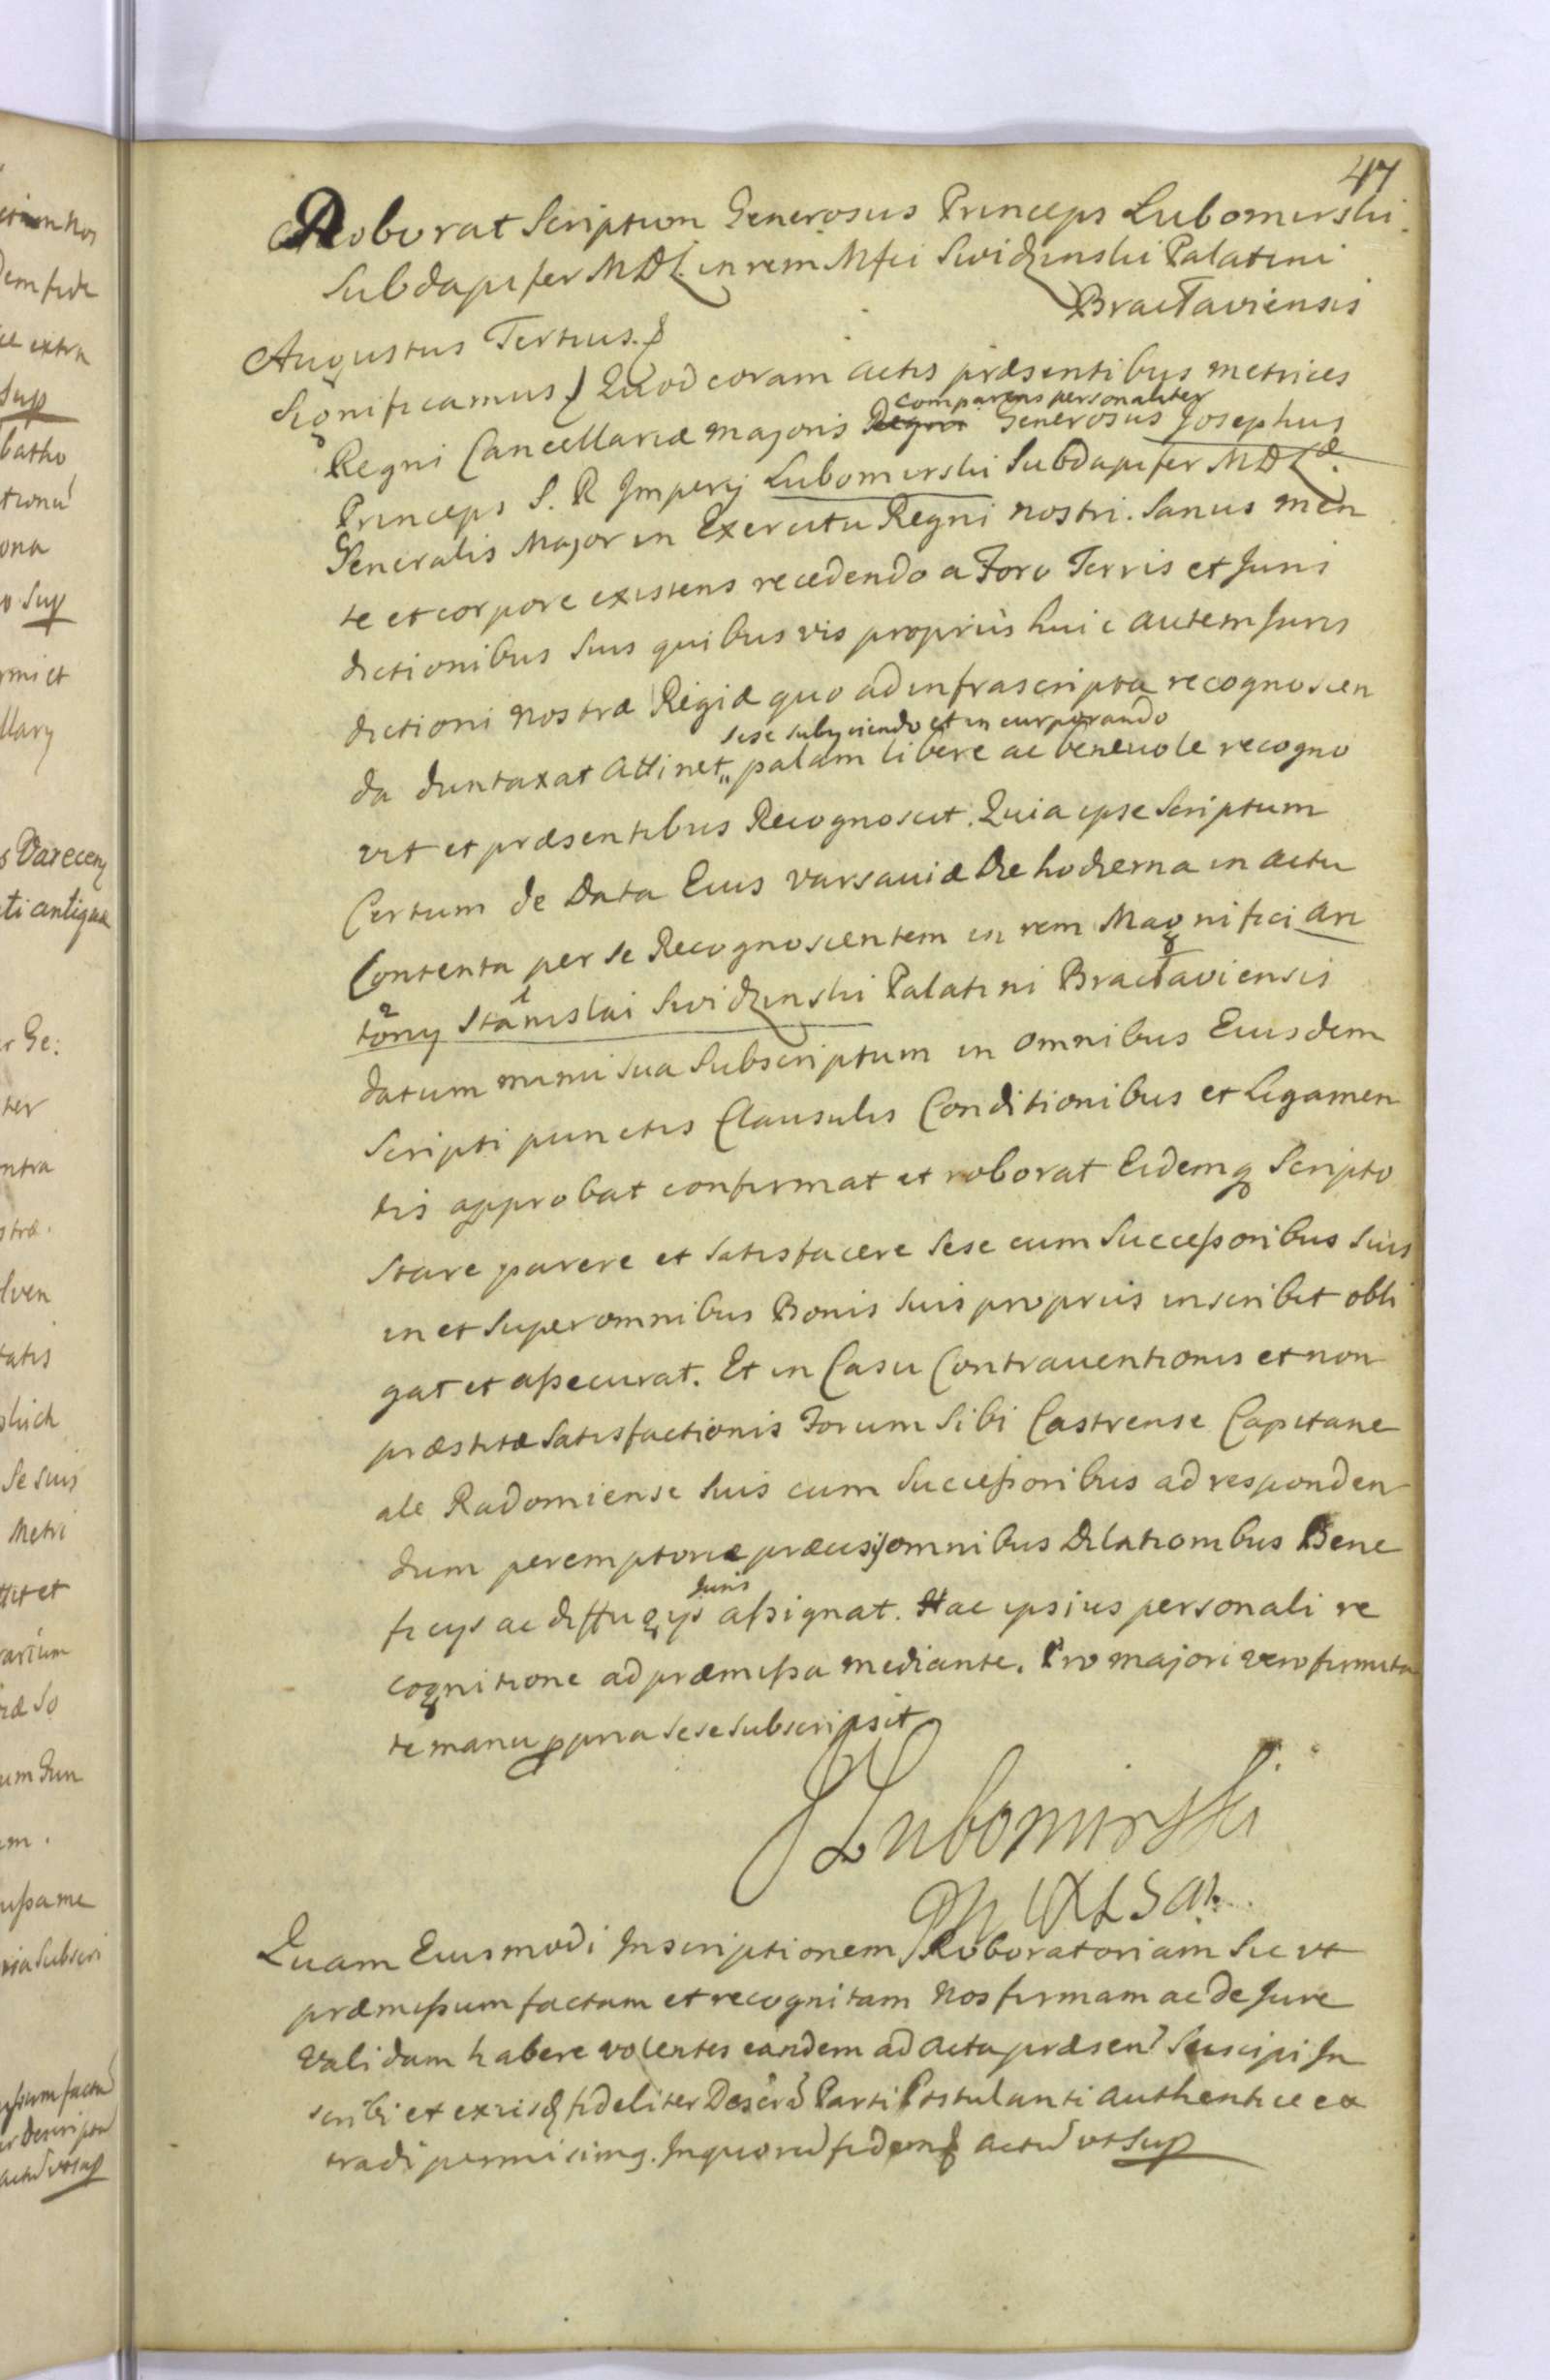 47
Roborat Scriptum Generosus Princeps Lubomirski
Subdapifer MDL. in rem Mfci Swidzinski Palatini
Bracłaviensis
Augustus Tertius.
Significamus Quod coram actis præsentibus metrices
comparens personaliter
Regni Cancellariæ majoris Regni Generosus Josephus
Princeps S. R Imperij Lubomirski Subdapifer MDL
Generalis Major in Exercitu Regni nostri. Sanus men
te et corpore existens recedendo a Foro Terris et Juris
dictionibus suis quibus vis proprijs huic autem Juris
dictioni nostræ Regiæ quo ad infrascripta recognoscen
sese subijciendo et incorporando
da duntaxat attinet,, palam libere ac benevole recogno
vit et præsentibus Recognoscit. Quia ipse Scriptum
Certum de Data Eius varsaviæ Die hodierna in actu
Contenta per se Recognoscentem in rem Magnifici An
tonij Stanislai Swidzinski Palatini Bracłaviensis
datum manu sua Subscriptum in omnibus Eiusdem
Scripti punctis Clausulis Conditionibus et Ligamen
tis approbat confirmat et roborat Eidemq Scripto
Stare parere et satisfacere sese cum Successoribus suis
in et super omnibus Bonis suis proprijs inscribit obli
gat et assecurat. Et in Casu Contraventionis et non
præstitæ satisfactionis Forum sibi Castrense Capitane
ale Radomiense suis cum Successoribus ad responden
dum peremptorie præcisis omnibus Dilationibus Bene
Juris
ficijs ac diffugijs assignat. Hac ipsius personali re
cognitione ad præmissa mediante. Pro majori vero firmita
te manu ppria sese subscripsit
J Lubomirski
Quam Eiusmodi Inscriptionem Roboratoriam Sic ut
præmissum factam et recognitam nos firmam ac de Jure
validam habere volentes eandem ad acta præsen suscipi In
scribi et ex ijsq fideliter Descri Parti Postulanti authentice ex
tradi permisimus. In quorum fidem actum ut Sup